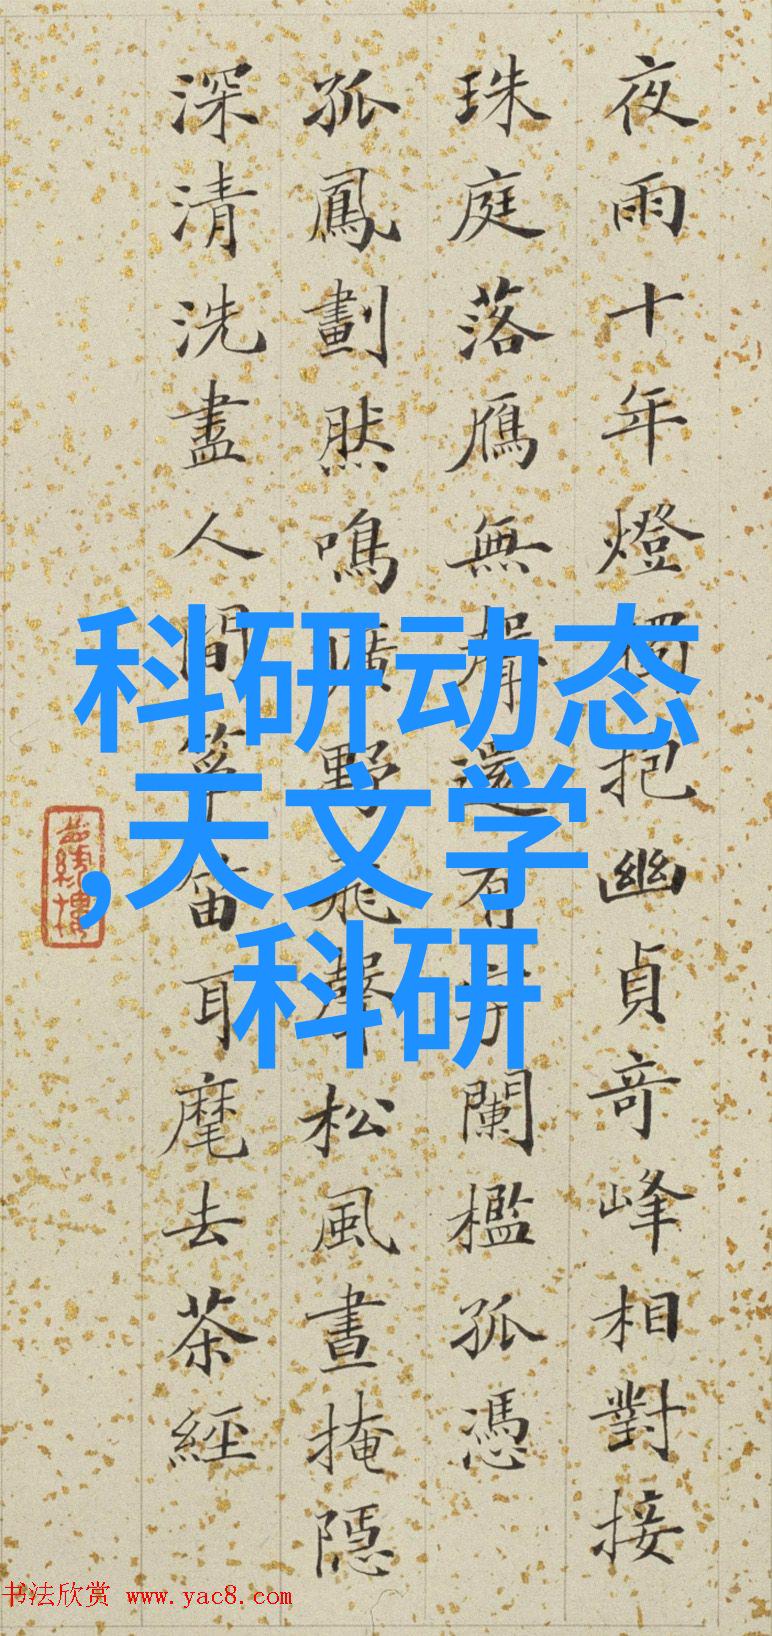 科研动态
,天文学
科研
夜雨十年燈抱幽貞奇峰相對接
珠庭落鴈無聲有闌檻孤憑
孤鳳劃然鳴野飛聲松風晝掩隱
深清洗盡人間箏笛耳麾去茶經
书法欣赏 www.yac8.com